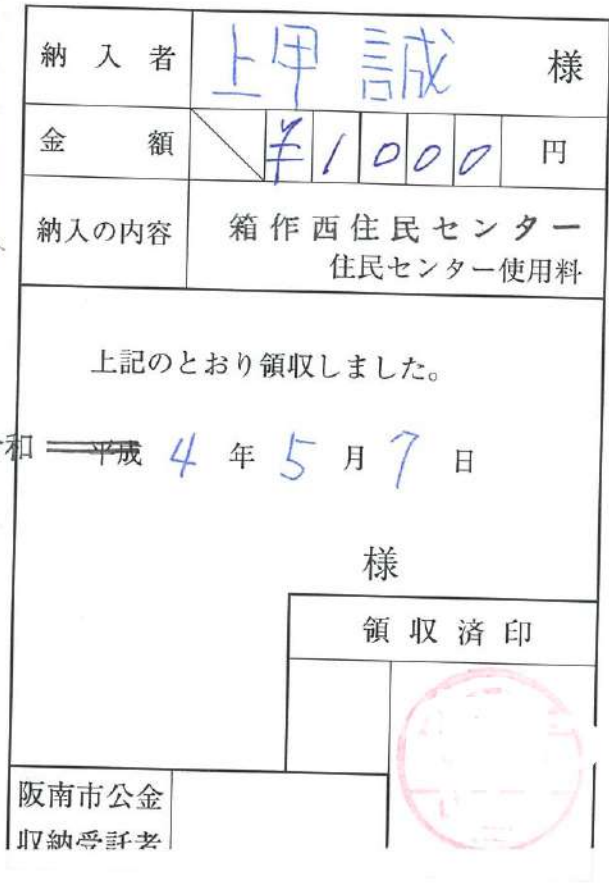 納入者 上甲 誠 様
金額 ¥1000 円
納入の内容 箱作西住民センター
住民センター使用料
上記のとおり領収しました。
和 平成 4 年 5 月 7 日
様
領収済印
阪南市公金
収納受託者